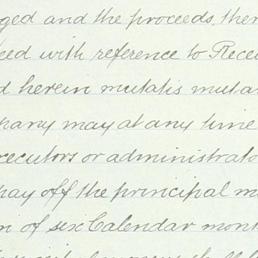 ged and the proceeds, ther
eed with reference to Recei
d herein mutatis mutan
pany may at any time
xecutors or administrato
pay off the principal m
n of six Calendar mont